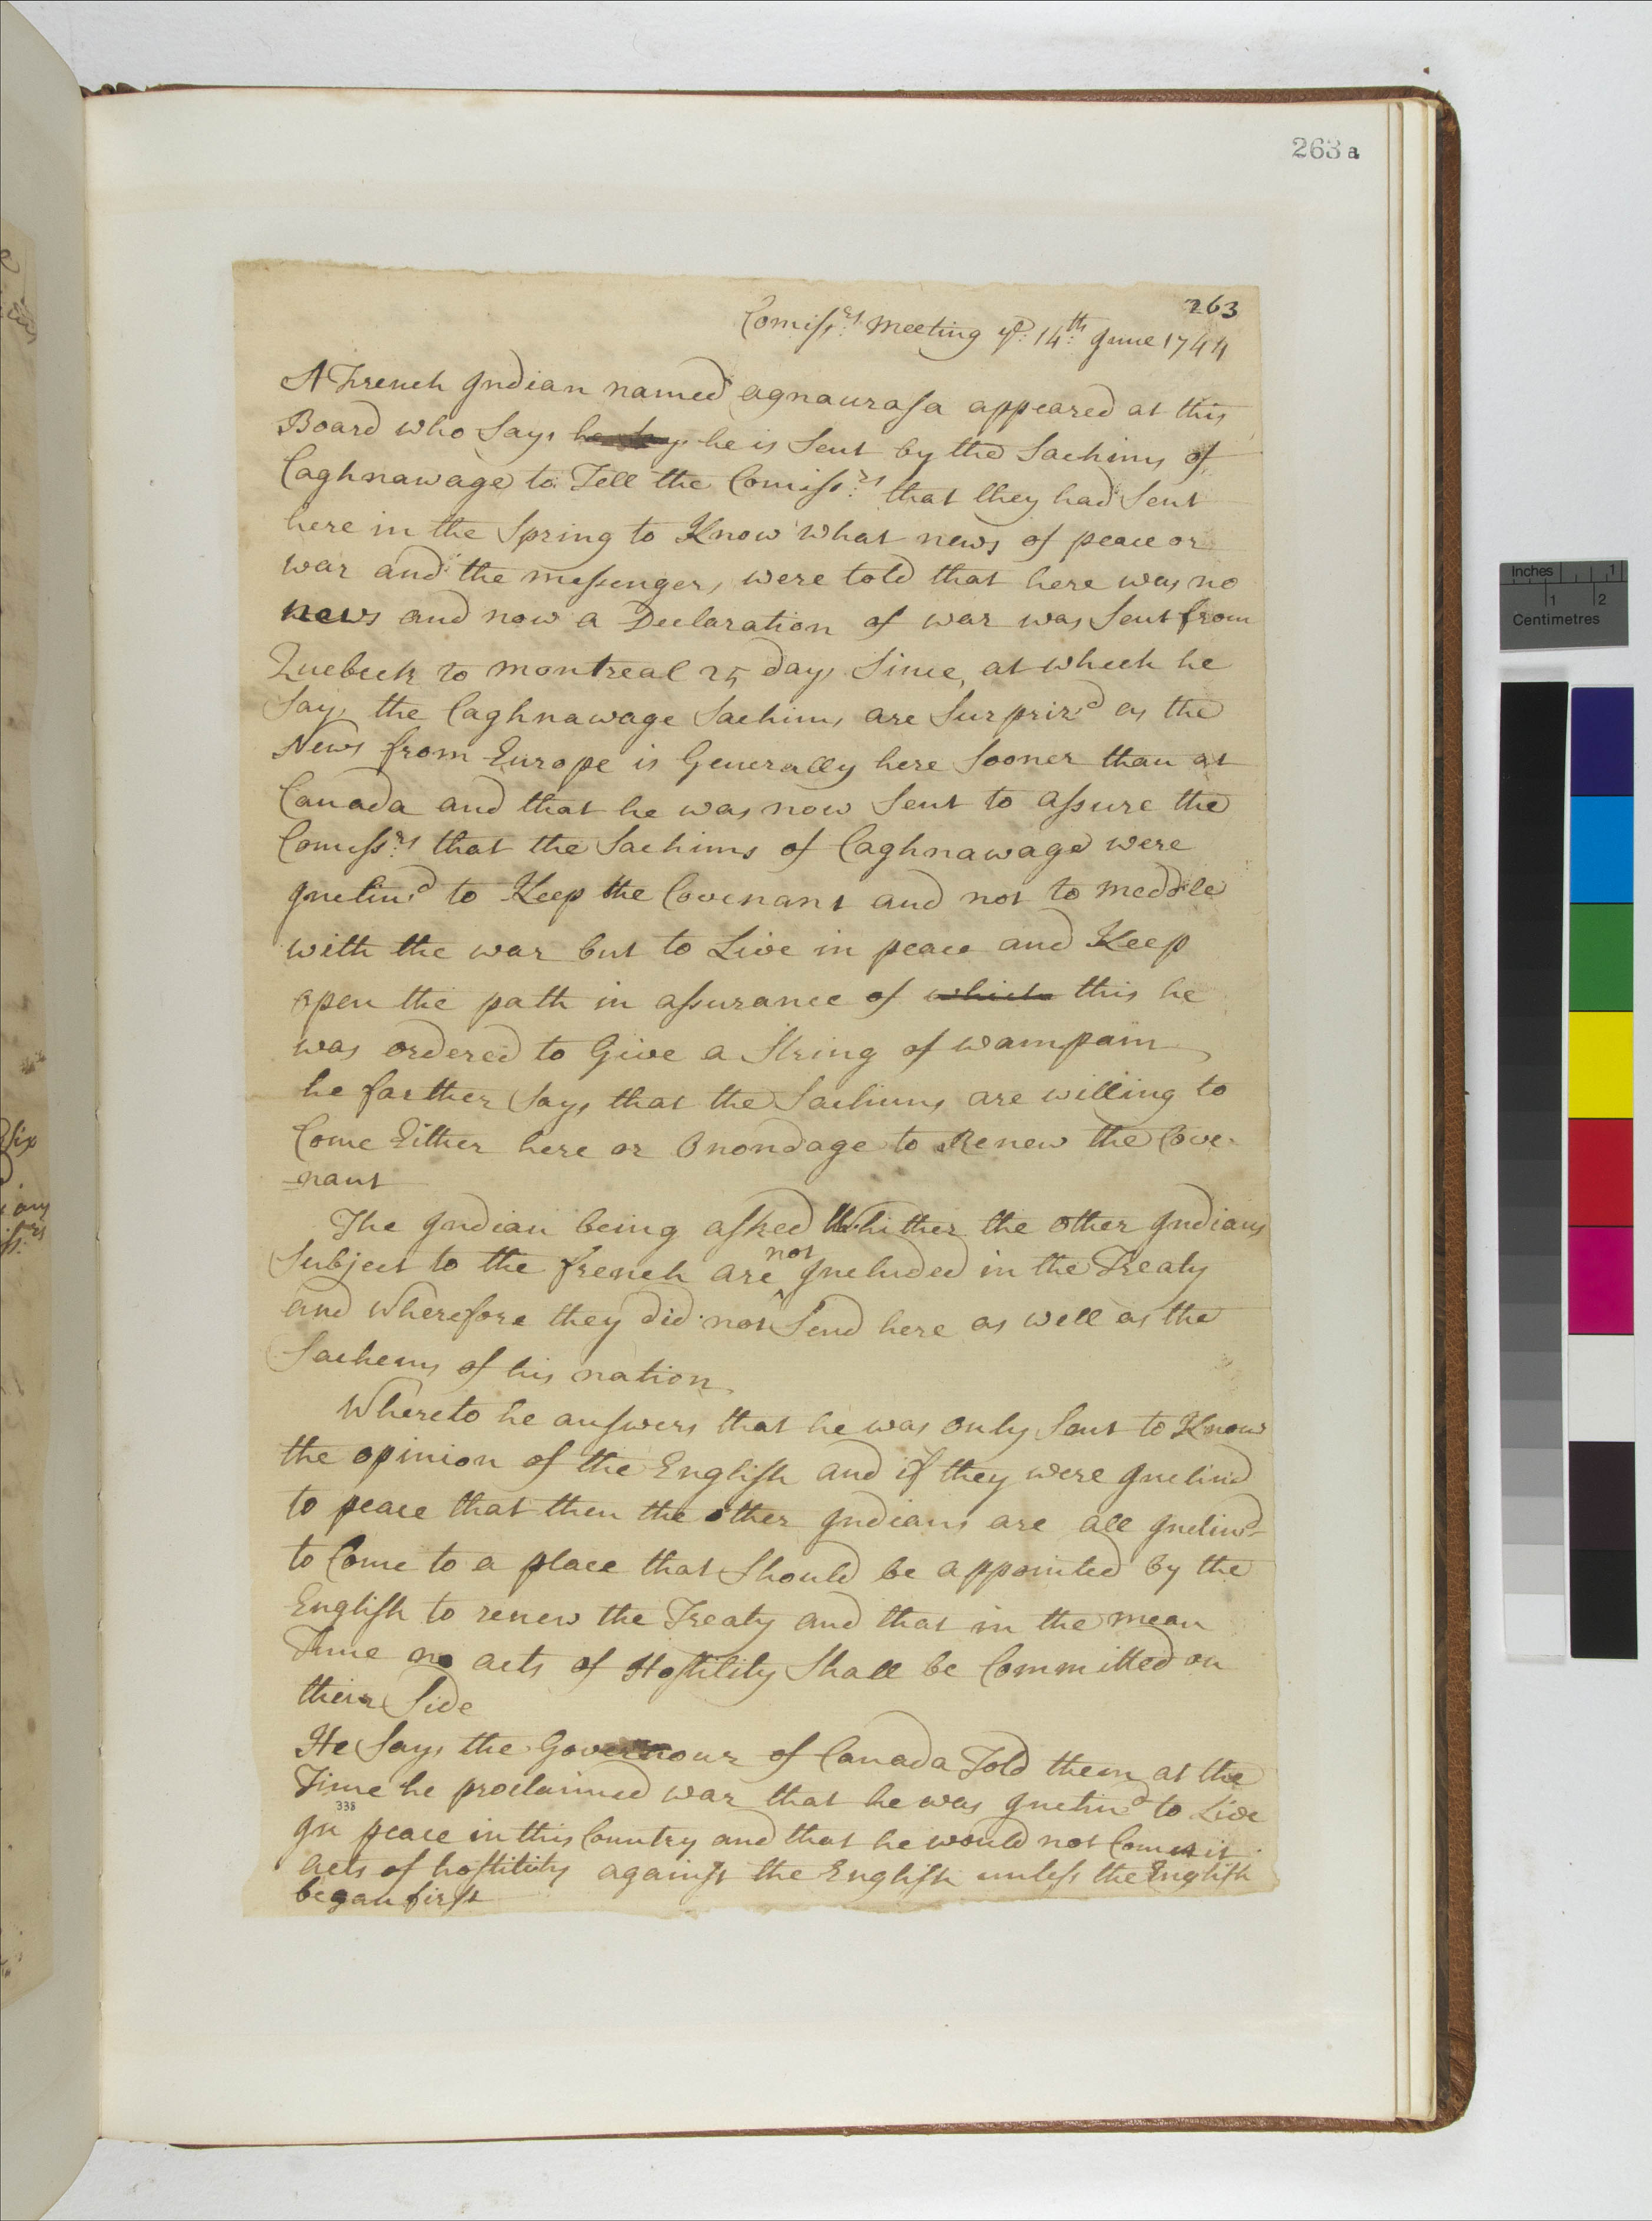 263 a
263
Comiss.rs meeting ye. 14.th June 1744
A French Indian named agnaurasa appeared at this
Board who Says he is Sent by the Sachims of
Caghnawage to Tell the Comiss.rs that they had Sent
here in the Spring to Know what news of peace or
war and the messengers were told that here was no
news and now a Declaration of war was Sent from
Quebeck to montreal 25 days Since, at which he
Says the Caghnawage Sachims are Surpriz'd as the
News from Europe is Generally here Sooner than at
Canada and that he was now Sent to assure the
Comiss.rs that the Sachims of Caghnawage were
Inclin'd to Keep the Covenant and not to meddle
with the war but to Live in peace and Keep
open the path in assurance of which this he
was ordered to Give a String of wampum
he farther Says that the Sachims are willing to
Come Either here or Onondage to Renew the Cove-
-nant
The Indian being asked Whither the other Indians
Subject to the french are not Included in the Treaty
and Wherefore they did not Send here as well as the
Sachems of his nation
Whereto he answers that he was only Sent to Know
the opinion of the English and if they were Inclin'd
to peace that then the other Indians are all Inclin'd
to Come to a place that Should be appointed by the
English to renew the Treaty and that in the mean
Time no acts of Hostility Shall be Committed on
their Side
He Says the Governour of Canada Told them at the
Time he proclaimed war that he was Inclin'd to Live
338
In peace in this Country and that he would not Commit
acts of hostility against the English unless the English
began first
Inches 1
1 2
Centimetres